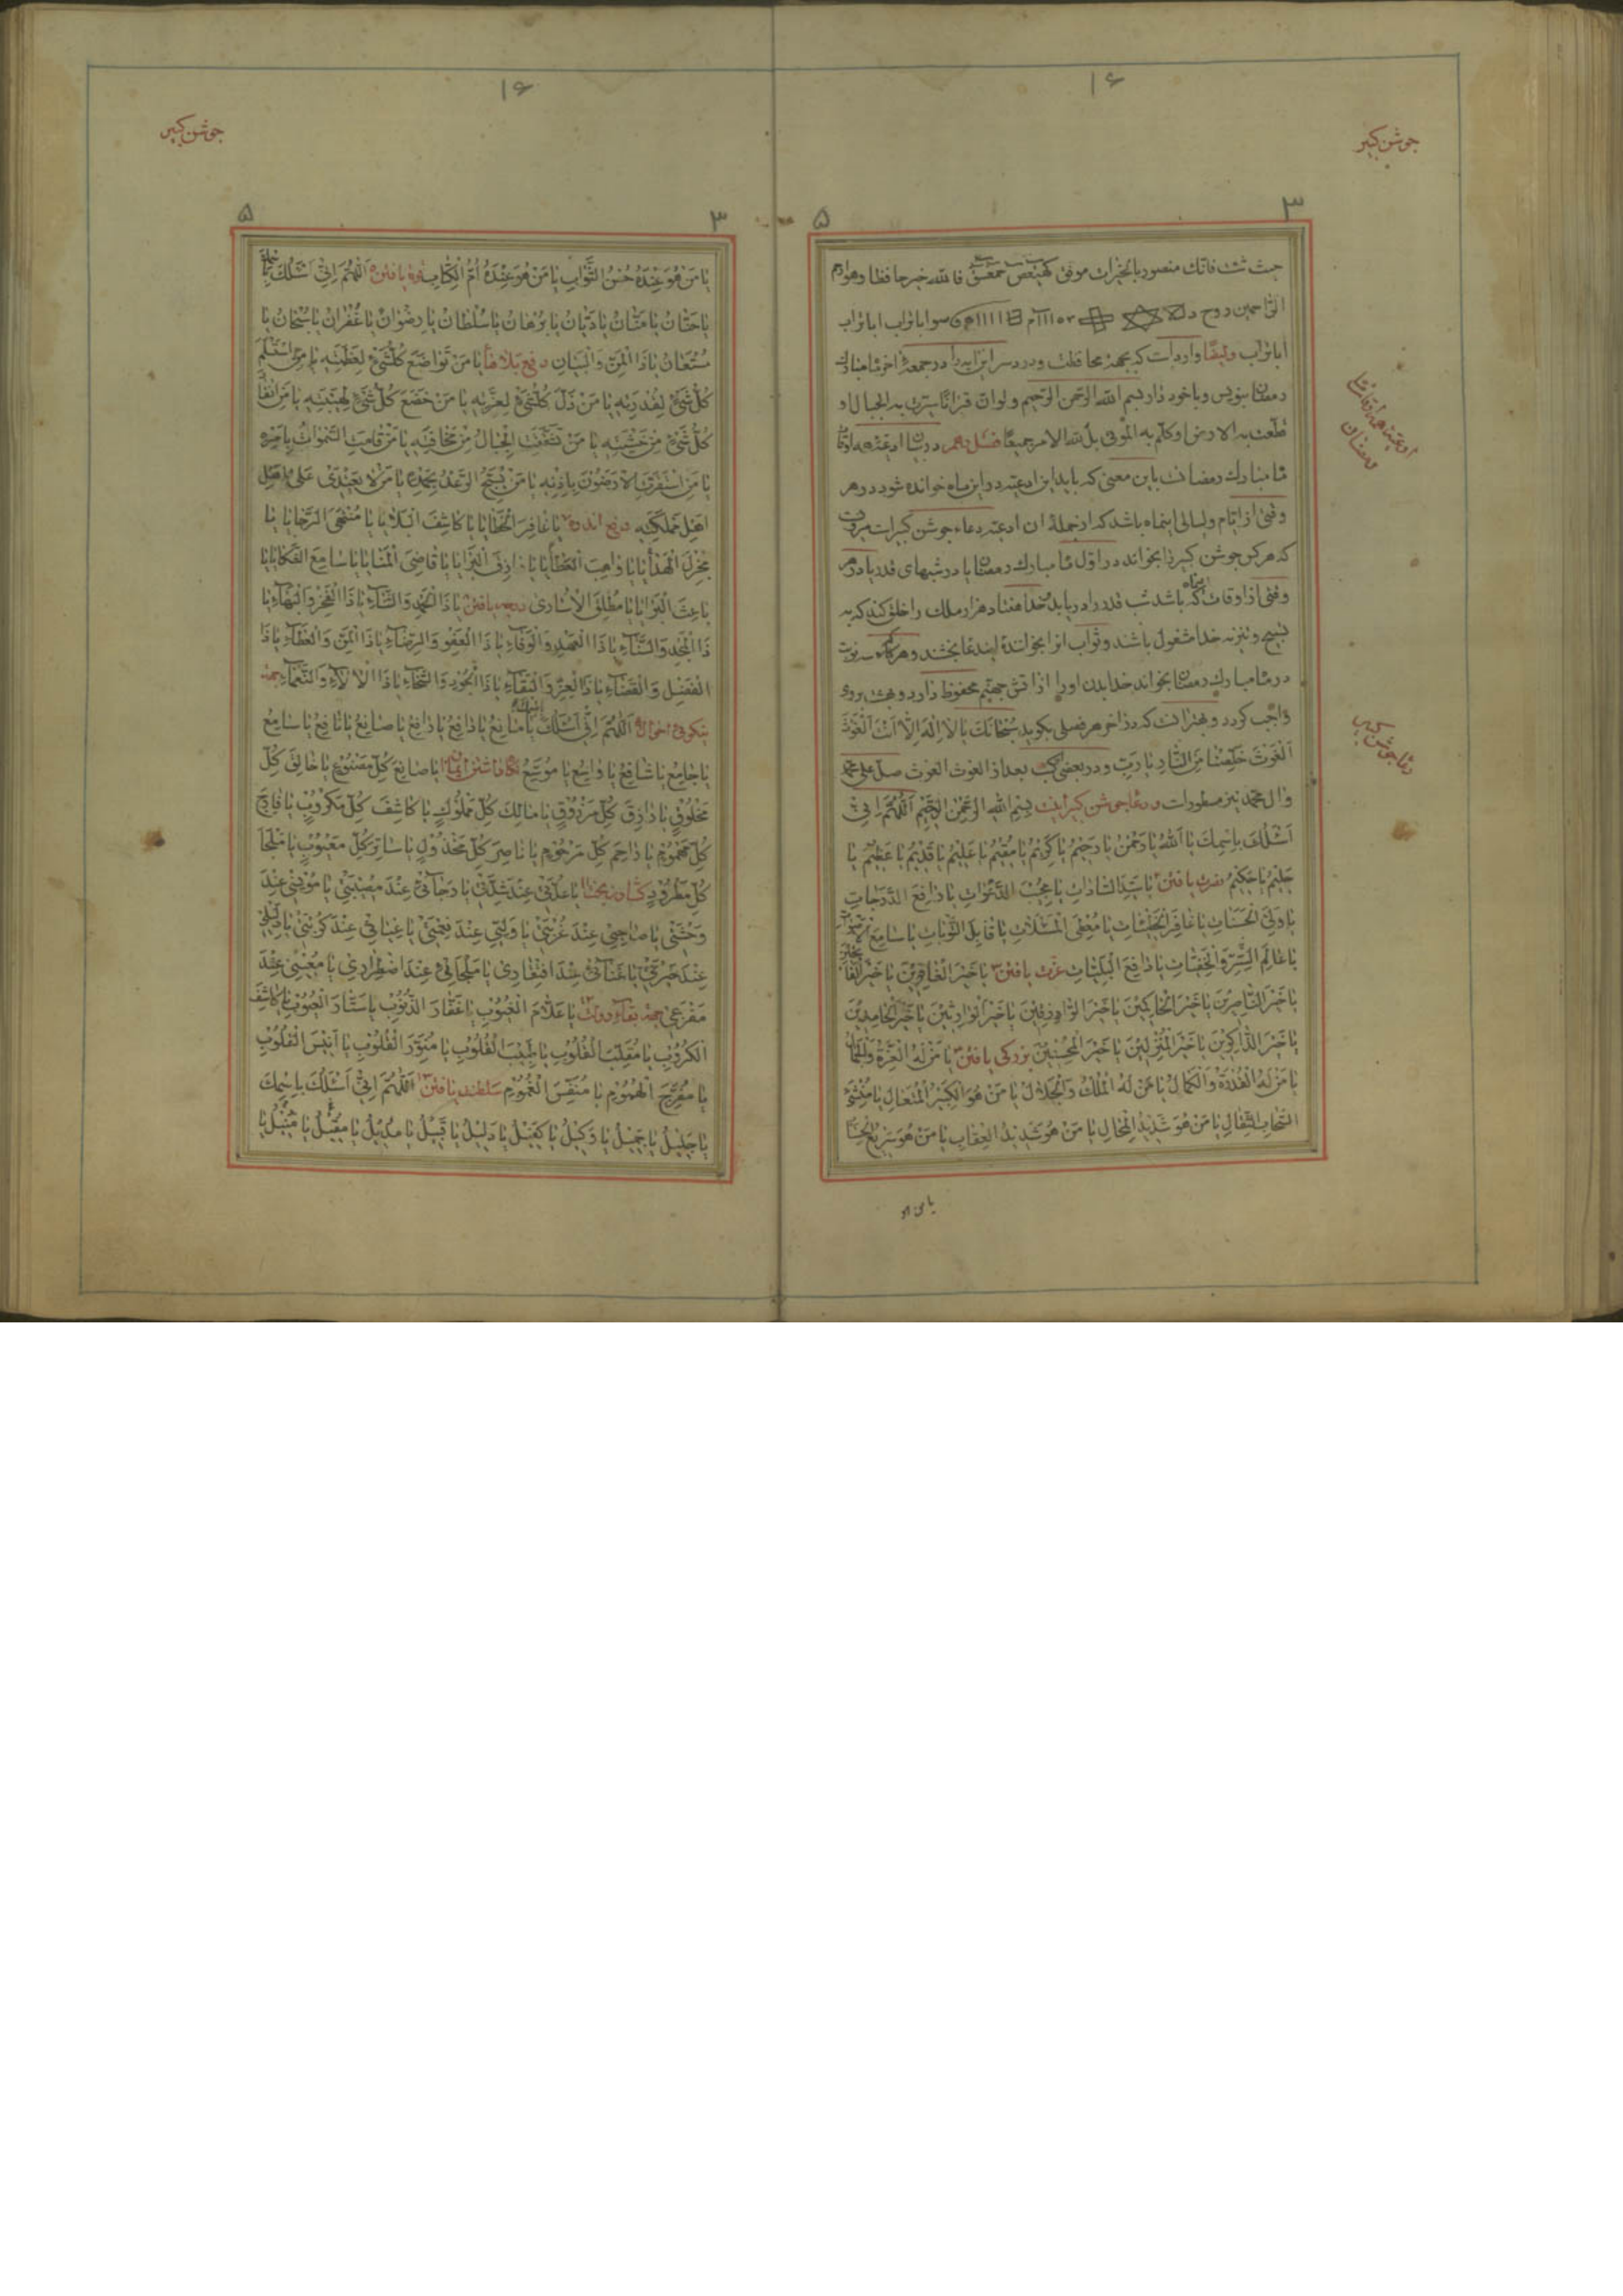 ۱۶
جوشن کبیر
۳
۵
حیث شئت فانک منصور بالخیرات موفق کهیعص حمعسق فالله خیر حافظا وهو ارحم
الراحمین
ابا تراب وایضا وارد است که بجهة محافظت ودرد سر این آیه را در جمعهٔ آخر ماه مبارک
رمضان بنویس وباخود دار بسم الله الرحمن الرحیم ولو ان قرآنا سیرت به الجبال او
قطعت به الارض او کلم به الموتی بل لله الامر جمیعا فصل در بیان ادعیه
ماه مبارک رمضان باین معنی که باید این ادعیه در این ماه خوانده شود در هر
وقتی از ایام ولیالی اینماه باشد که از جملهٔ آن ادعیه دعاء جوشن کبیر است مرویست
که هرکس جوشن کبیر را بخواند در اول ماه مبارک رمضان یا در شبهای قدر یا در هر
وقتی از اوقات که باشد شب قدر را دریابد خدا هفتاد هزار ملک را خلق کند که به
تسبیح وتنزیه خدا مشغول باشند وثواب آنرا بخوانندهٔ ایندعا بخشند وهرکه سه نوبت
در ماه مبارک رمضان بخواند خدا بدن او را از آتش جهنم محفوظ دارد وبهشت بر وی
واجب گردد وبهتر آنست که در آخر هر فصلی بگوید سُبْحانَكَ یا لا اِلهَ اِلّا اَنْتَ اَلْغَوْثَ
اَلْغَوْثَ خَلِّصْنا مِنَ النّارِ یا رَبِّ ودر بعضی کتب بعد از الغوث الغوث صل علی محمد
وآل محمد نیز مسطور است ودعا جوشن کبیر اینست بِسْمِ اللهِ الرَّحْمنِ الرَّحیمِ اَللّهُمَّ اِنّی
اَسْئَلُكَ بِاسْمِكَ یا اَللهُ یا رَحْمنُ یا رَحیمُ یا كَریمُ یا مُقیمُ یا عَلیمُ یا قَدیمُ یا عَظیمُ یا
حَلیمُ یا حَكیمُ نصرت یافتن یا سَیِّدَ السّاداتِ یا مُجیبَ الدَّعَواتِ یا رافِعَ الدَّرَجاتِ
یا وَلِیَّ الْحَسَناتِ یا غافِرَ الْخَطیئاتِ یا مُعْطِیَ الْمَسْئَلاتِ یا قابِلَ التَّوْباتِ یا سامِعَ الْاَصْواتِ
یا عالِمَ السِّرِّ وَالْخَفِیّاتِ یا دافِعَ الْبَلِیّاتِ عزت یافتن یا خَیْرَ الْغافِرینَ یا خَیْرَ الْفاتِحینَ
یا خَیْرَ النّاصِرینَ یا خَیْرَ الْحاكِمینَ یا خَیْرَ الرّازِقینَ یا خَیْرَ الْوارِثینَ یا خَیْرَ الْحامِدینَ
یا خَیْرَ الذّاكِرینَ یا خَیْرَ الْمُنْزِلینَ یا خَیْرَ الْمُحْسِنینَ بزرگی یافتن یا مَنْ لَهُ الْعِزَّةُ وَالْجَمالُ
یا مَنْ لَهُ الْقُدْرَةُ وَالْكَمالُ یا مَنْ لَهُ الْمُلْكُ وَالْجَلالُ یا مَنْ هُوَ الْكَبیرُ الْمُتَعالِ یا مُنْشِئَ
السَّحابِ الثِّقالِ یا مَنْ هُوَ شَدیدُ الْمِحالِ یا مَنْ هُوَ شَدیدُ الْعِقابِ یا مَنْ هُوَ سَریعُ الْحِسابِ
یا من هو
ادعیه ماه رمضان
دعا جوشن کبیر
۱۶
جوشن کبیر
۳
۵
یا مَنْ هُوَ عِنْدَهُ حُسْنُ الثَّوابِ یا مَنْ هُوَ عِنْدَهُ اُمُّ الْكِتابِ یافتن اَللّهُمَّ اِنّی اَسْئَلُكَ
یا حَنّانُ یا مَنّانُ یا دَیّانُ یا بُرْهانُ یا سُلْطانُ یا رِضْوانُ یا غُفْرانُ یا سُبْحانُ یا
مُسْتَعانُ یا ذَا الْمَنِّ وَالْبَیانِ دفع بلاها یا مَنْ تَواضَعَ كُلُّ شَیْءٍ لِعَظَمَتِهِ یا مَنِ اسْتَسْلَمَ
كُلُّ شَیْءٍ لِقُدْرَتِهِ یا مَنْ ذَلَّ كُلُّ شَیْءٍ لِعِزَّتِهِ یا مَنْ خَضَعَ كُلُّ شَیْءٍ لِهَیْبَتِهِ یا مَنِ انْقادَ
كُلُّ شَیْءٍ مِنْ خَشْیَتِهِ یا مَنْ تَشَقَّقَتِ الْجِبالُ مِنْ مَخافَتِهِ یا مَنْ قامَتِ السَّمواتُ بِاَمْرِهِ
یا مَنِ اسْتَقَرَّتِ الْاَرَضُونَ بِاِذْنِهِ یا مَنْ یُسَبِّحُ الرَّعْدُ بِحَمْدِهِ یا مَنْ لا یَعْتَدی عَلی
اَهْلِ مَمْلَكَتِهِ دفع اندوه یا غافِرَ الْخَطایا یا كاشِفَ الْبَلایا یا مُنْتَهَی الرَّجایا یا
مُجْزِلَ الْهَدایا یا واهِبَ الْعَطایا یا رازِقَ الْبَرایا یا قاضِیَ الْمَنایا یا سامِعَ الشَّكایا یا
باعِثَ الْبَرایا یا مُطْلِقَ الْاُساری درجه یافتن یا ذَا الْحَمْدِ وَالثَّناءِ یا ذَا الْفَخْرِ وَالْبَهاءِ یا
ذَا الْمَجْدِ وَالسَّناءِ یا ذَا الْعَهْدِ وَالْوَفاءِ یا ذَا الْعَفْوِ وَالرِّضاءِ یا ذَا الْمَنِّ وَالْعَطاءِ یا ذَا
الْفَضْلِ وَالْقَضاءِ یا ذَا الْعِزِّ وَالْبَقاءِ یا ذَا الْجُودِ وَالسَّخاءِ یا ذَا الْالاءِ وَالنَّعْماءِ
نیکوئی احوال اَللّهُمَّ اِنّی اَسْئَلُكَ بِاسْمِكَ یا مانِعُ یا دافِعُ یا رافِعُ یا صانِعُ یا نافِعُ یا سامِعُ
یا جامِعُ یا شافِعُ یا واسِعُ یا مُوسِعُ یا صانِعَ كُلِّ مَصْنُوعٍ یا خالِقَ كُلِّ
مَخْلُوقٍ یا رازِقَ كُلِّ مَرْزُوقٍ یا مالِكَ كُلِّ مَمْلُوكٍ یا كاشِفَ كُلِّ مَكْرُوبٍ یا فارِجَ
كُلِّ مَهْمُومٍ یا راحِمَ كُلِّ مَرْحُومٍ یا ناصِرَ كُلِّ مَخْذُولٍ یا ساتِرَ كُلِّ مَعْیُوبٍ یا مَلْجَأَ
كُلِّ مَطْرُودٍ یا عُدَّتی عِنْدَ شِدَّتی یا رَجائی عِنْدَ مُصیبَتی یا مُونِسی عِنْدَ
وَحْشَتی یا صاحِبی عِنْدَ غُرْبَتی یا وَلِیّی عِنْدَ نِعْمَتی یا غِیاثی عِنْدَ كُرْبَتی یا دَلیلی
عِنْدَ حَیْرَتی یا غَنائی عِنْدَ افْتِقاری یا مَلْجَائی عِنْدَ اضْطِراری یا مُعینی عِنْدَ
مَفْزَعی جهة بقاء دولت یا عَلّامَ الْغُیُوبِ یا غَفّارَ الذُّنُوبِ یا سَتّارَ الْعُیُوبِ یا كاشِفَ
الْكُرُوبِ یا مُقَلِّبَ الْقُلُوبِ یا طَبیبَ الْقُلُوبِ یا مُنَوِّرَ الْقُلُوبِ یا اَنیسَ الْقُلُوبِ
یا مُفَرِّجَ الْهُمُومِ یا مُنَفِّسَ الْغُمُومِ سلطنت یافتن اَللّهُمَّ اِنّی اَسْئَلُكَ بِاسْمِكَ
یا جَلیلُ یا جَمیلُ یا وَكیلُ یا كَفیلُ یا دَلیلُ یا قَبیلُ یا مُدیلُ یا مُقیلُ یا مُنیلُ یا